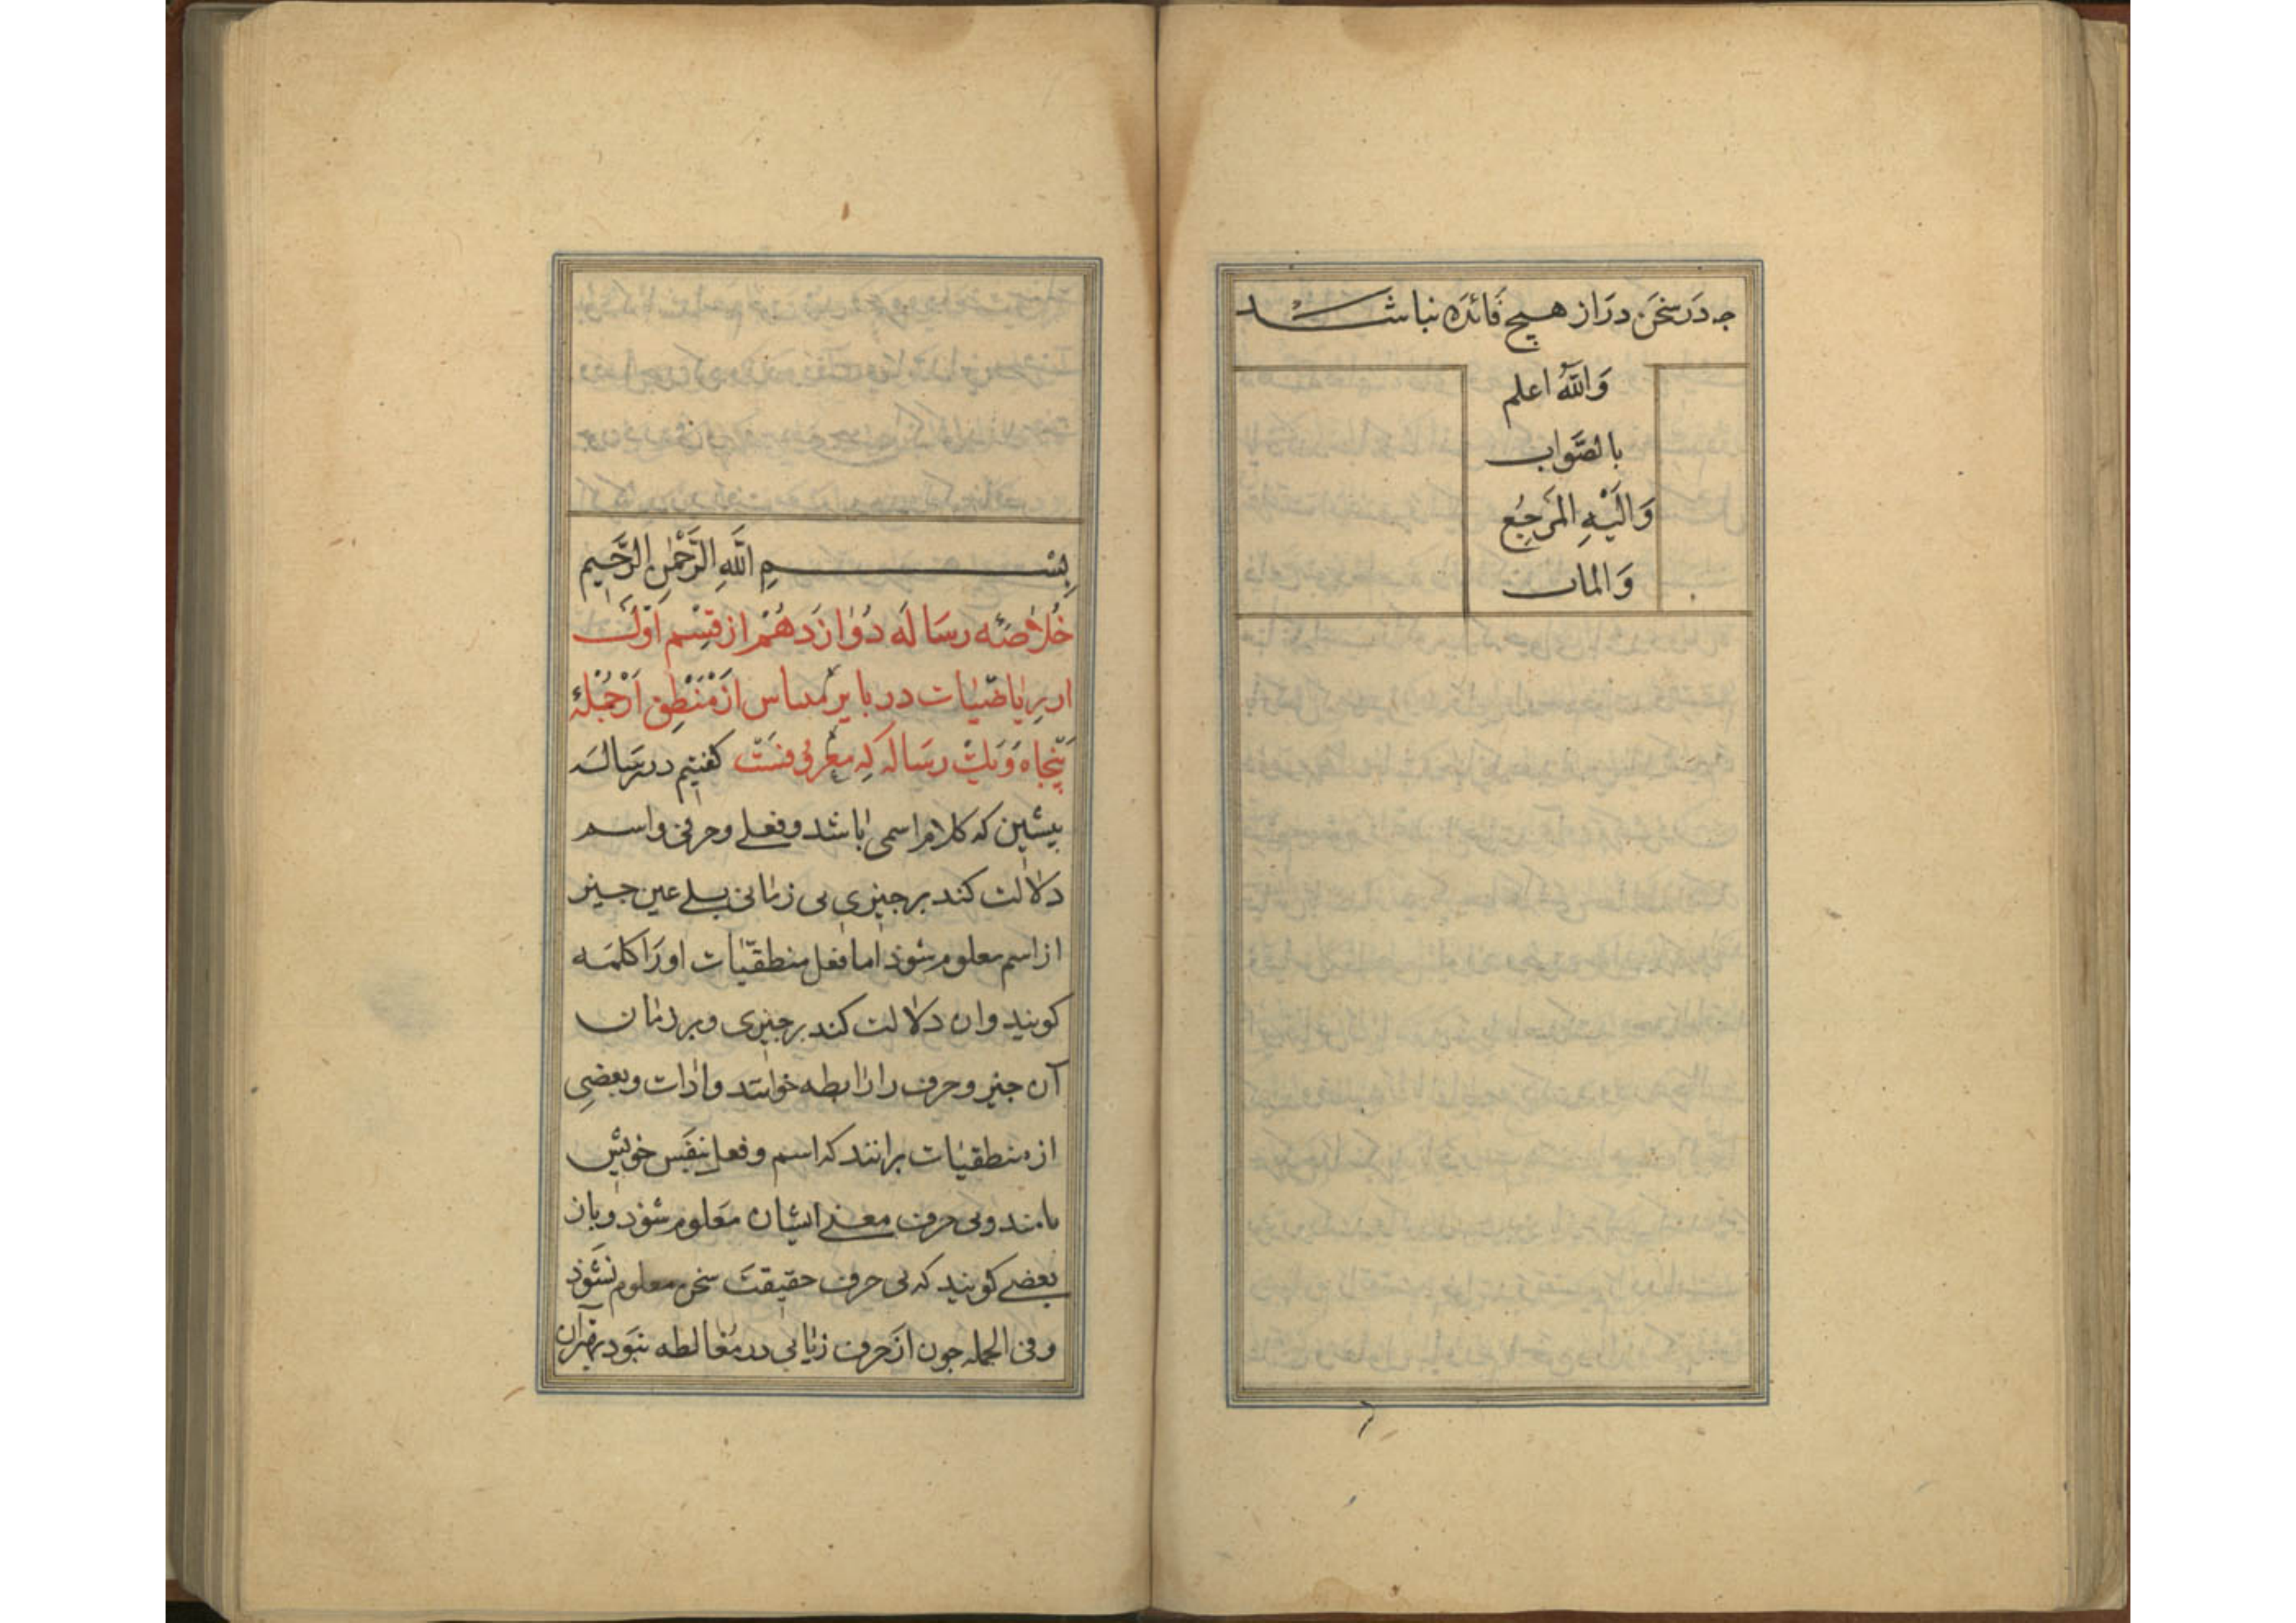 جه در سخن دراز هیچ فائده نباشد
وَاللّٰهُ اعلم
بالصَّواب
وَالَیْهِ المَرجِعُ
وَالمآب
بِسْمِ اللَّهِ الرَّحْمٰنِ الرَّحیمِ
خُلاصَه رسَالَه دُوٰازدَهُمْ از قِسْم اَوّل
از رِیٰاضیّات در از مَنْطِق اَزْ جُمْلَهٔ
پَنْجاه وَ یَکْ رسَاله که معرفی فنست کفتیم در رسَاله
پیشین که کلام اسمی باشد و فعلی و حرفی و اسم
دلالت کند بر جیزی بی زمانی بلی عین جیز
از اسم معلوم شوذ اما فعل منطقیّات او رَا کلمَه
کویند و ان دلالت کند بر جیزی و بر زمان
آن جیز و حرف را رابطه خوانند و ادات و بعضی
از منطقیات برانند که اسم و فعل بنفَس خویش
بی حرف معنی ایشان مَعلوم شوذ و باز
بعضی کویند که بی حرف حقیقت سخن معلوم نشَوذ
و فی الجمله جون از حرف در مغالطه نبَود